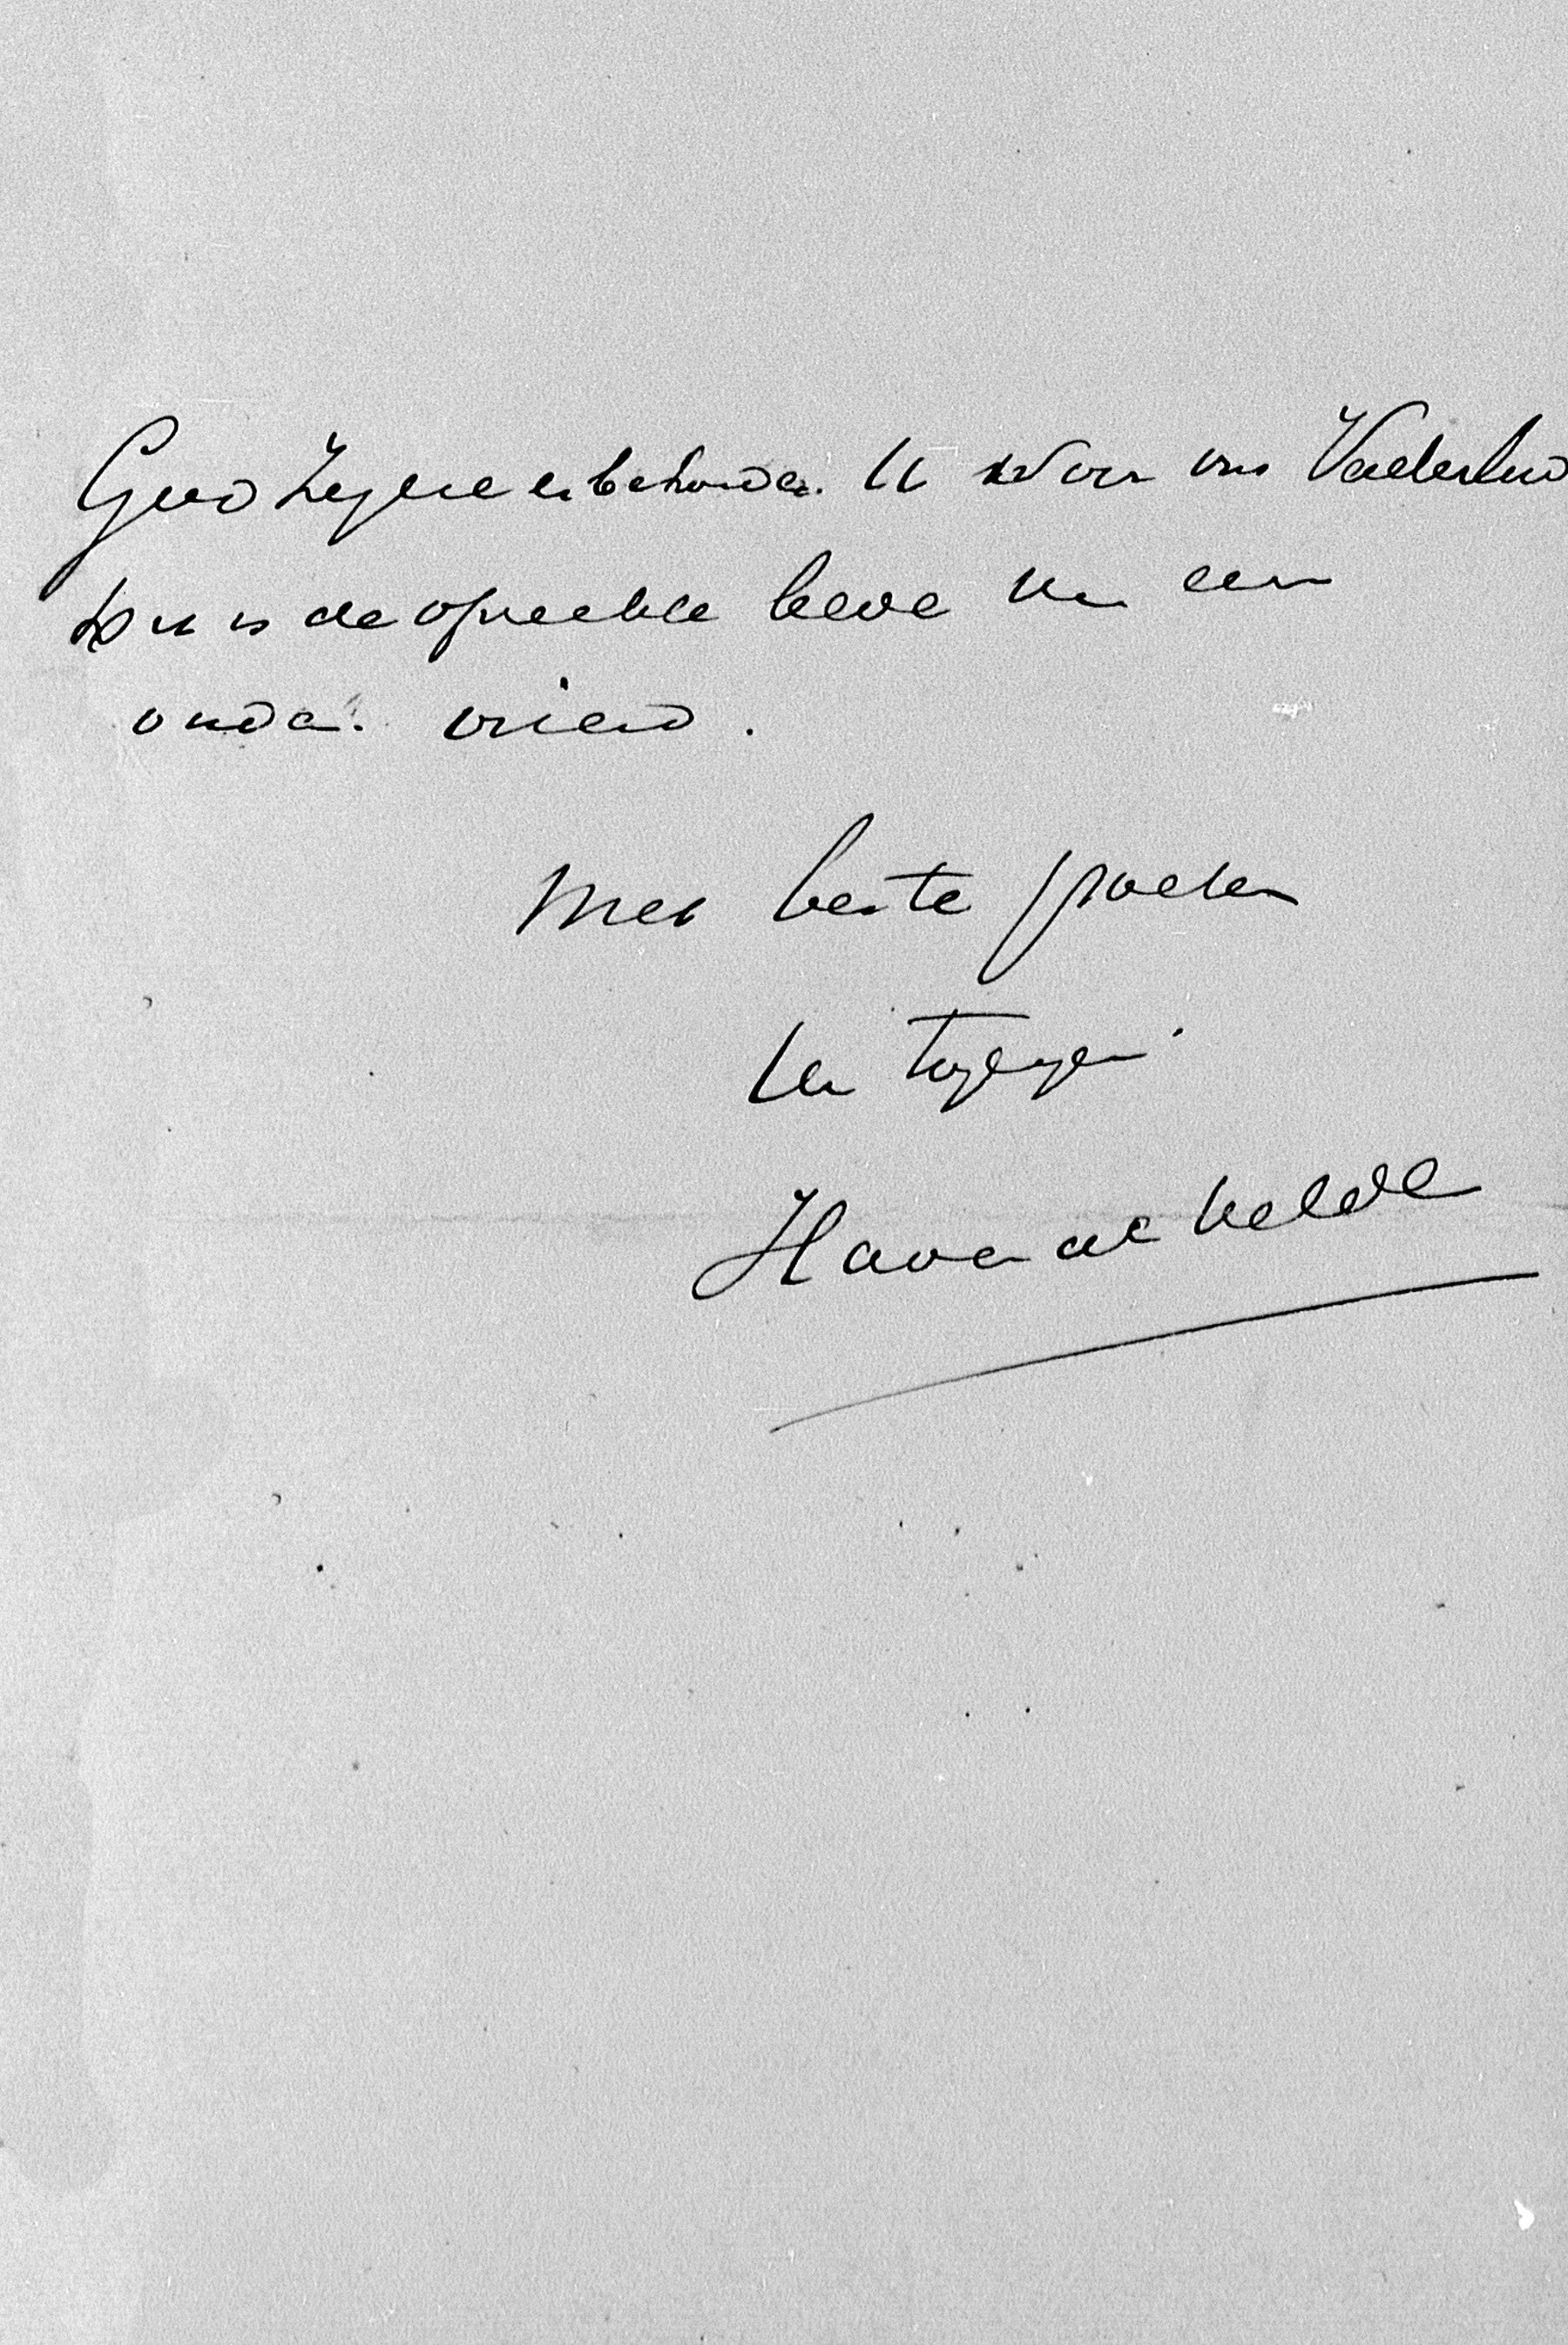 God zegene en behoude U voor ons Vaderland
Dit is de oprechte bede van een
ouden vriend.
Met beste groeten
Uw toegegen
Haver de Velde